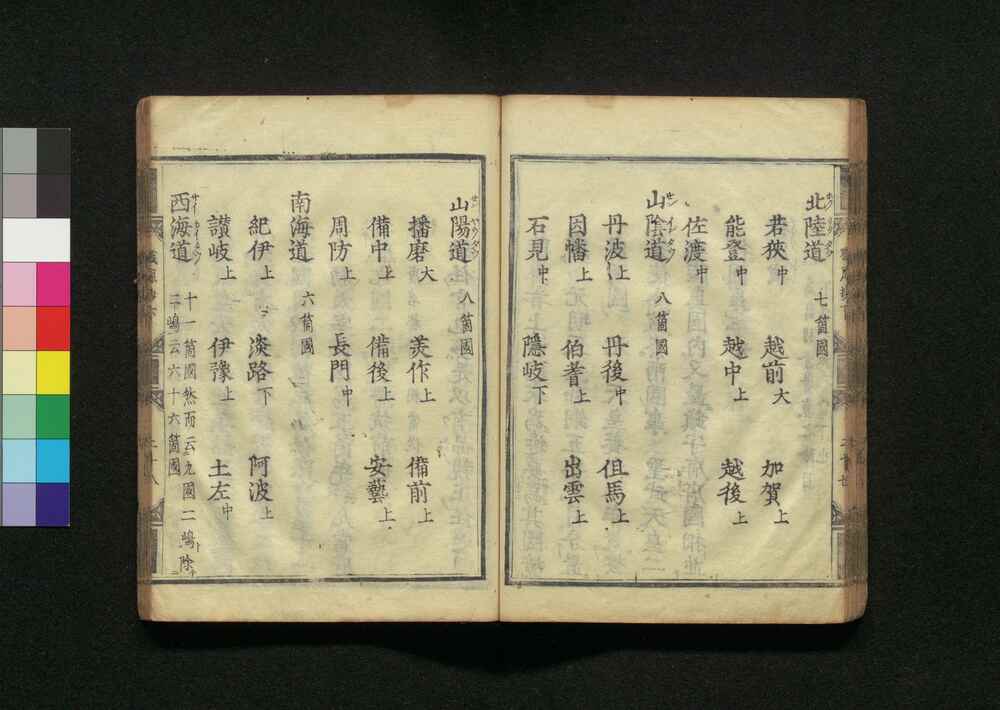 北陸道 七箇國
若狹中 越前大 加賀上
能登中 越中上 越後上
佐渡中
山陰道 八箇國
丹波上 丹後中 但馬上
因幡上 伯耆上 出雲上
石見中 隱岐下
山陽道 八箇國
播磨大 美作上 備前上
備中上 備後上 安藝上
周防上 長門中
南海道 六箇國
紀伊上 淡路下 阿波上
讃岐上 伊豫上 土左中
西海道 十一箇國然而云九國二嶋除
二嶋云六十六箇國